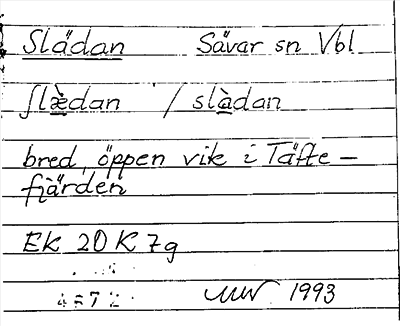 Slädan Sävar sn Vbl
slæ̀dan / slàdan
bred, öppen vik i Täfte-
fjärden
EK 20 K 7g
1993